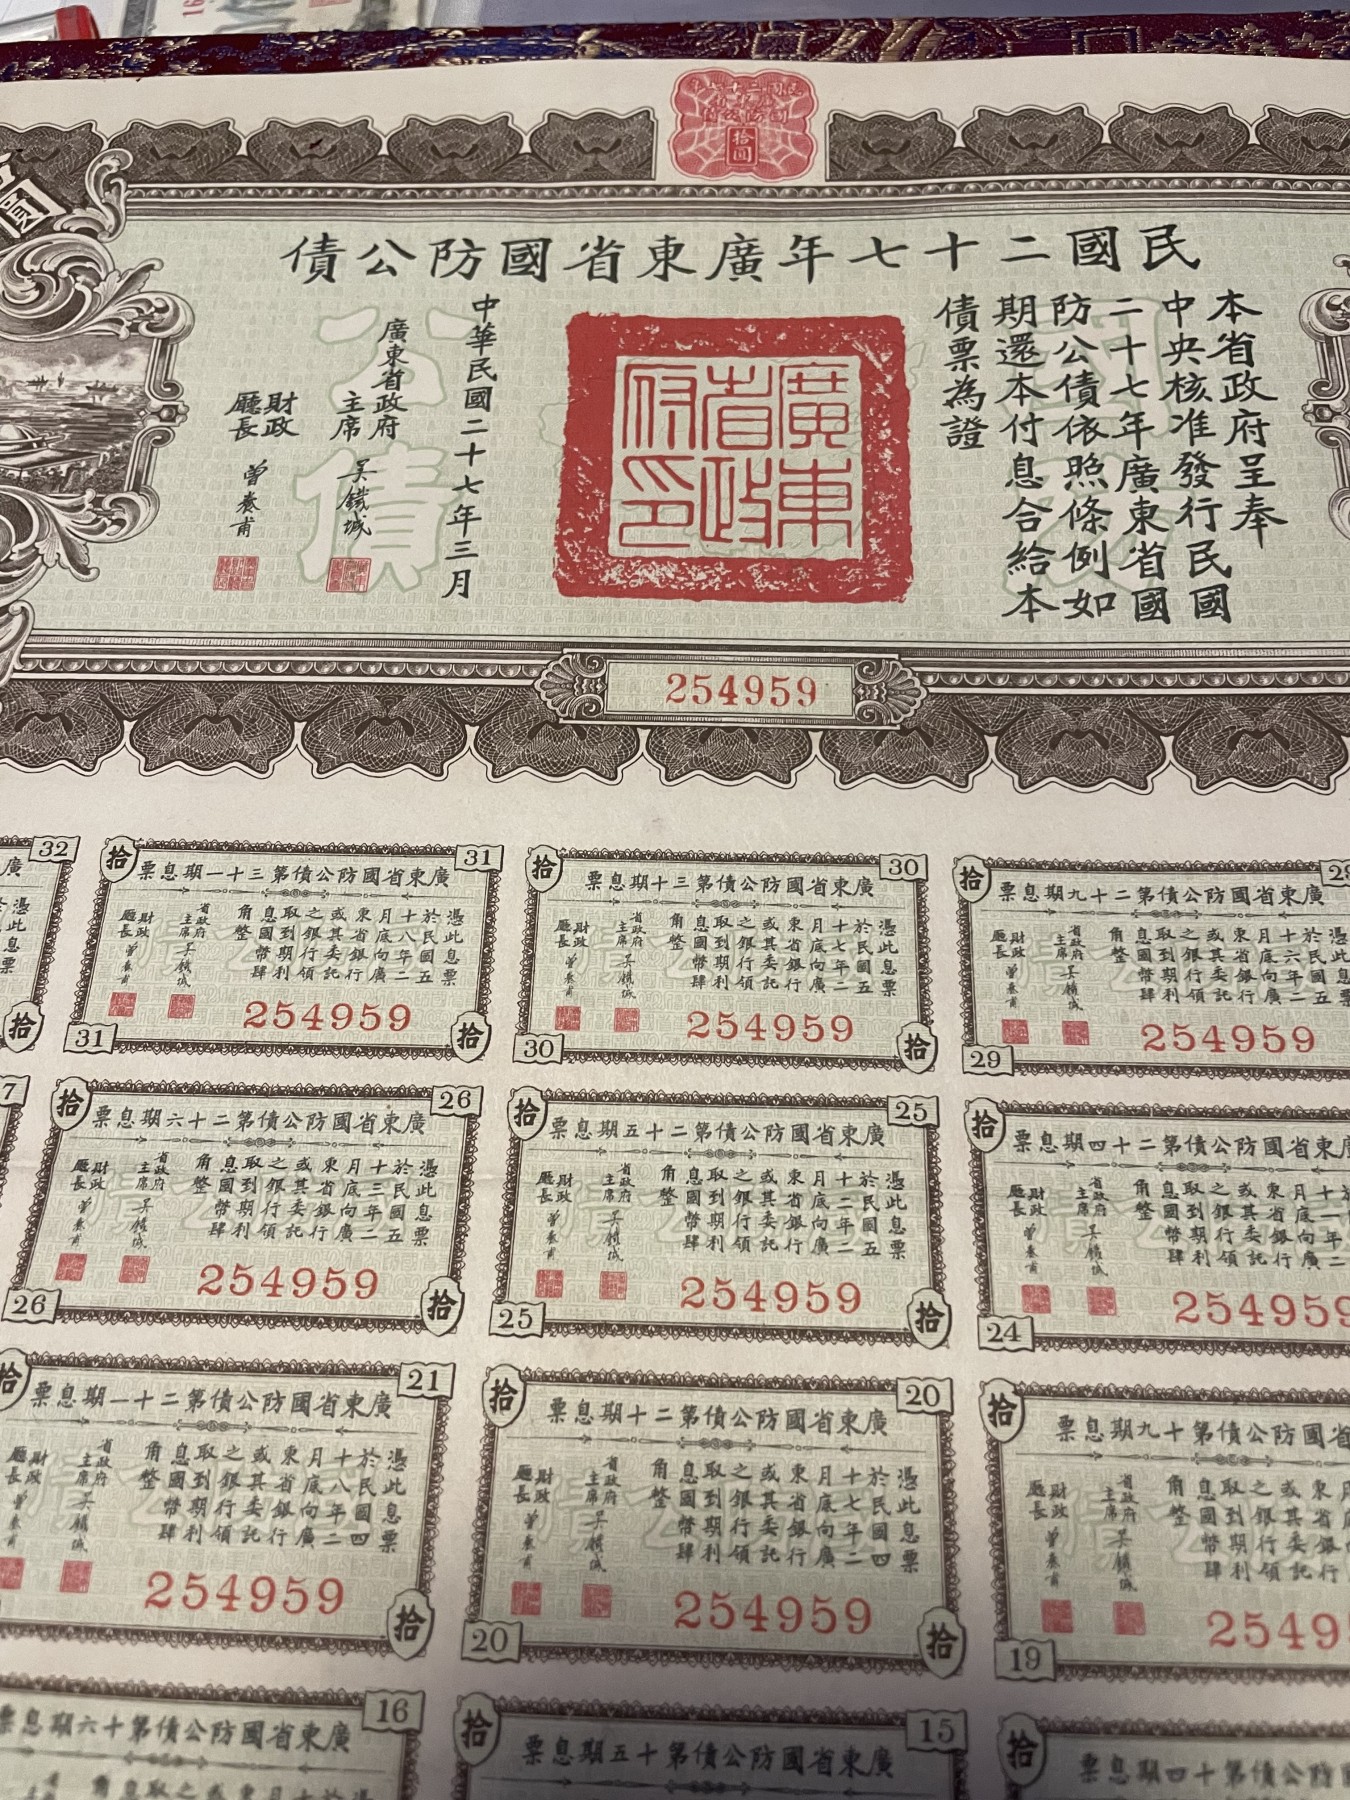 民國二十七年
國防公債
拾圓
圓
民國二十七年廣東省國防公債
本省政府呈奉
中央核准發行民國
二十七年廣東省國
防公債依照條例如
期還本付息合給本
債票為證
廣東省政府印
中華民國二十七年三月
廣東省政府
主席 吳鐵城
財政
廳長 曾養甫
公債
254959
32
廣
31
拾
廣東省國防公債第三十一期息票
憑此息票
於民國五
十八年二
月底向廣
東省銀行
或其委託
之銀行領
取到期利
息國幣肆
角整
省政府
主席 吳鐵城
財政
廳長 曾養甫
254959
31
拾
30
拾
廣東省國防公債第三十期息票
憑此息票
於民國五
十七年二
月底向廣
東省銀行
或其委託
之銀行領
取到期利
息國幣肆
角整
省政府
主席 吳鐵城
財政
廳長 曾養甫
254959
30
拾
29
拾
廣東省國防公債第二十九期息票
憑此息票
於民國五
十六年二
月底向廣
東省銀行
或其委託
之銀行領
取到期利
息國幣肆
角整
省政府
主席 吳鐵城
財政
廳長 曾養甫
254959
29
拾
7
26
拾
廣東省國防公債第二十六期息票
憑此息票
於民國五
十三年二
月底向廣
東省銀行
或其委託
之銀行領
取到期利
息國幣肆
角整
省政府
主席 吳鐵城
財政
廳長 曾養甫
254959
26
拾
25
拾
廣東省國防公債第二十五期息票
憑此息票
於民國五
十二年二
月底向廣
東省銀行
或其委託
之銀行領
取到期利
息國幣肆
角整
省政府
主席 吳鐵城
財政
廳長 曾養甫
254959
25
拾
拾
廣東省國防公債第二十四期息票
於民國五
十一年二
月底向廣
東省銀行
或其委託
之銀行領
取到期利
息國幣肆
角整
省政府
主席 吳鐵城
財政
廳長 曾養甫
254959
24
21
拾
廣東省國防公債第二十一期息票
憑此息票
於民國四
十八年二
月底向廣
東省銀行
或其委託
之銀行領
取到期利
息國幣肆
角整
省政府
主席 吳鐵城
財政
廳長 曾養甫
254959
拾
20
拾
廣東省國防公債第二十期息票
憑此息票
於民國四
十七年二
月底向廣
東省銀行
或其委託
之銀行領
取到期利
息國幣肆
角整
省政府
主席 吳鐵城
財政
廳長 曾養甫
254959
20
拾
拾
廣東省國防公債第十九期息票
月底向廣
東省銀行
或其委託
之銀行領
取到期利
息國幣肆
角整
省政府
主席 吳鐵城
財政
廳長 曾養甫
25495
19
16
廣東省國防公債第十六期息票
15
拾
廣東省國防公債第十五期息票
拾
省國防公債第十四期息票